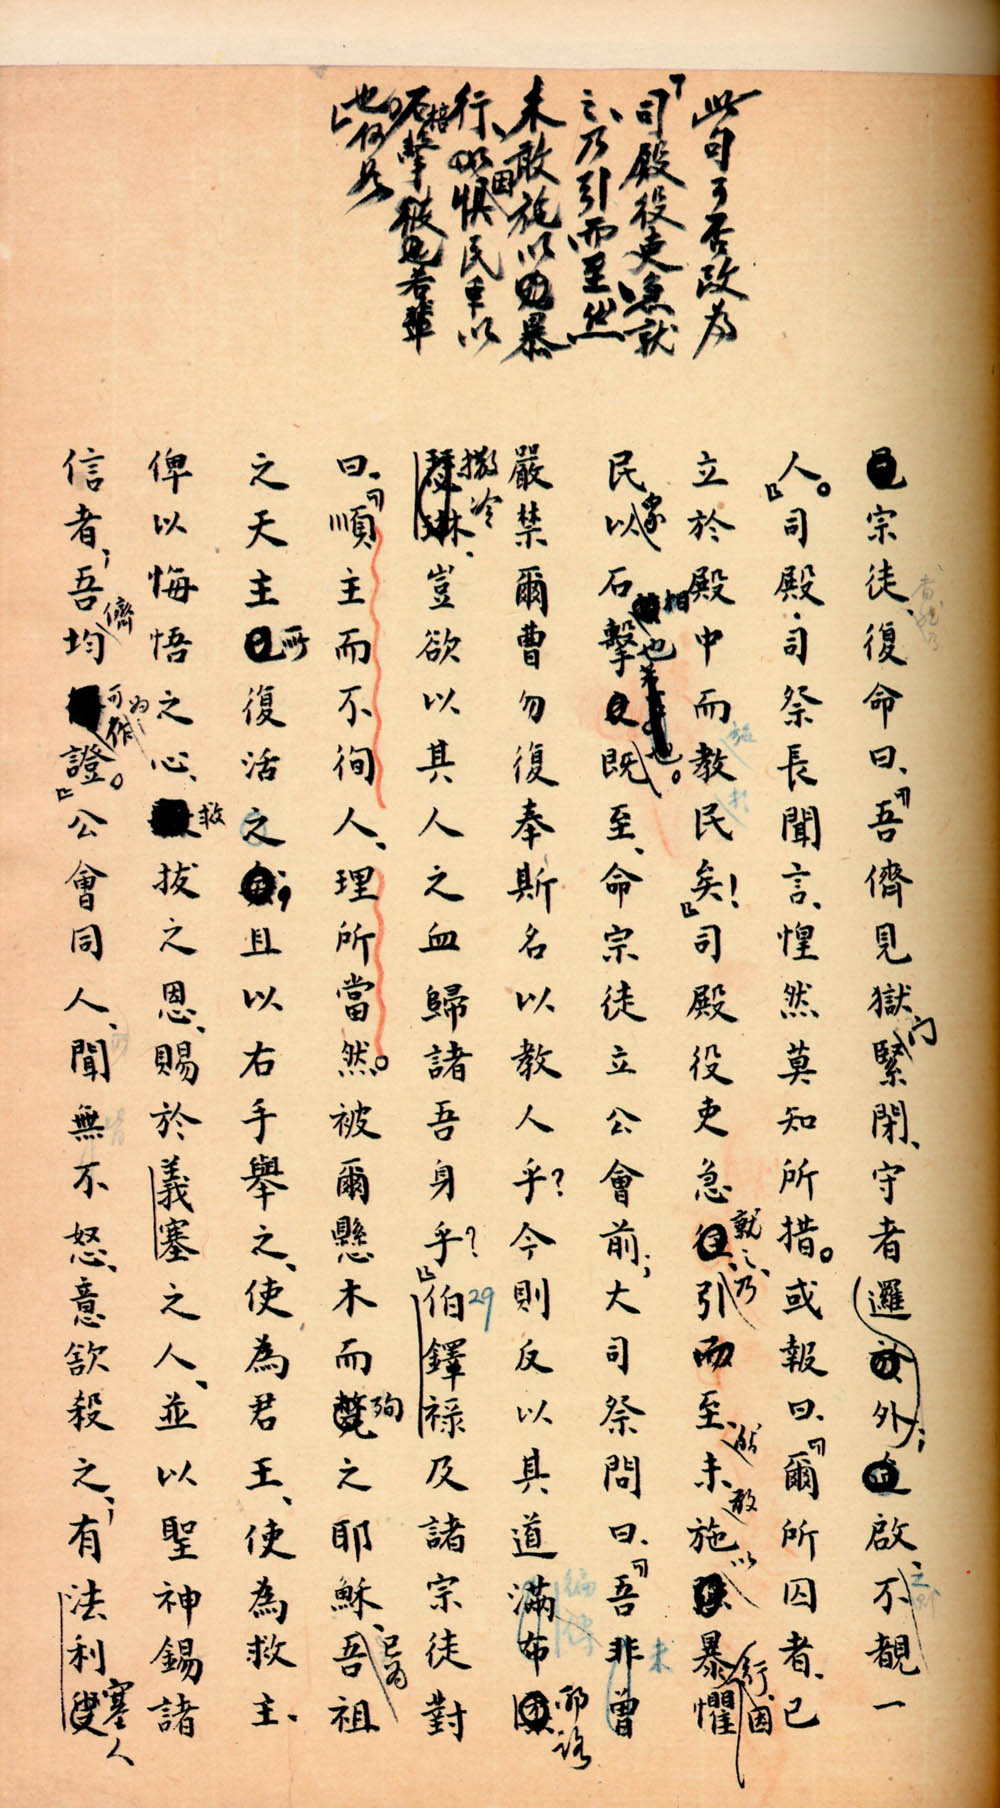 此句可否改為
「司殿役吏急就
之、乃引而至、然
未敢施以暴
行、因懼民眾以
石相擊
也何如
宗徒、復命曰、『吾儕見獄門緊閉、守者邏外；啟不覩一
人。』司殿、司祭長聞言、惶然莫知所措。或報曰、『爾所囚者、已
立於殿中而教民矣！』司殿役吏急就之、乃引而至、然未敢施以暴行、因懼
民眾以石相擊也。既至、命宗徒立公會前；大司祭問曰、『吾非曾
嚴禁爾曹勿復奉斯名以教人乎？今則反以其道滿布耶路
撒冷、豈欲以其人之血歸諸吾身乎？』29伯鐸祿及諸宗徒對
曰、『順主而不徇人、理所當然。被爾懸木而殉之耶穌、已為吾祖
之天主所復活之；且以右手舉之、使為君王、使為救主、
俾以悔悟之心、救拔之恩、賜於義塞之人、並以聖神錫諸
信者；吾儕均可為作證。』公會同人、聞無不怒、意欲殺之；有法利塞人